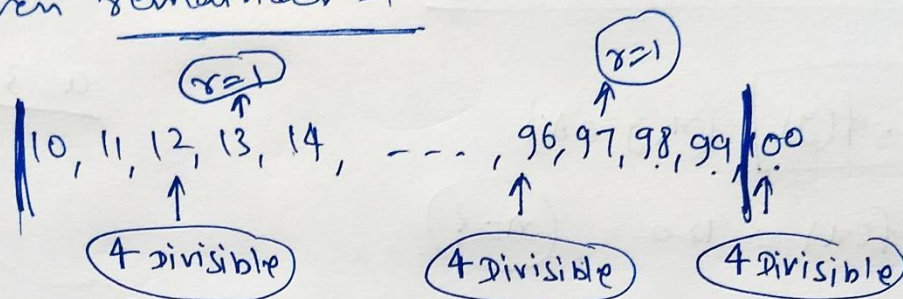 remainder
r=1 r=1
10, 11, 12, 13, 14, ---, 96, 97, 98, 99, 100
4 Divisible 4 Divisible 4 Divisible